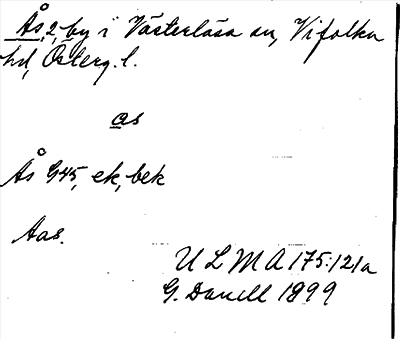 Ås, 2, by i Västerlösa sn, Vifolka
hd, Österg. l.
as
Ås G45, ek, bek
Aas.
U L M A 175:121a
G. Danell 1899